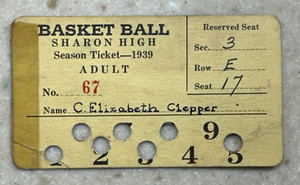 BASKET BALL
SHARON HIGH
Season Ticket—1939
ADULT
No. 67
Reserved Seat
Sec. 3
Row E
Seat 17
Name C. Elizabeth Clepper
7 9
2 4 5